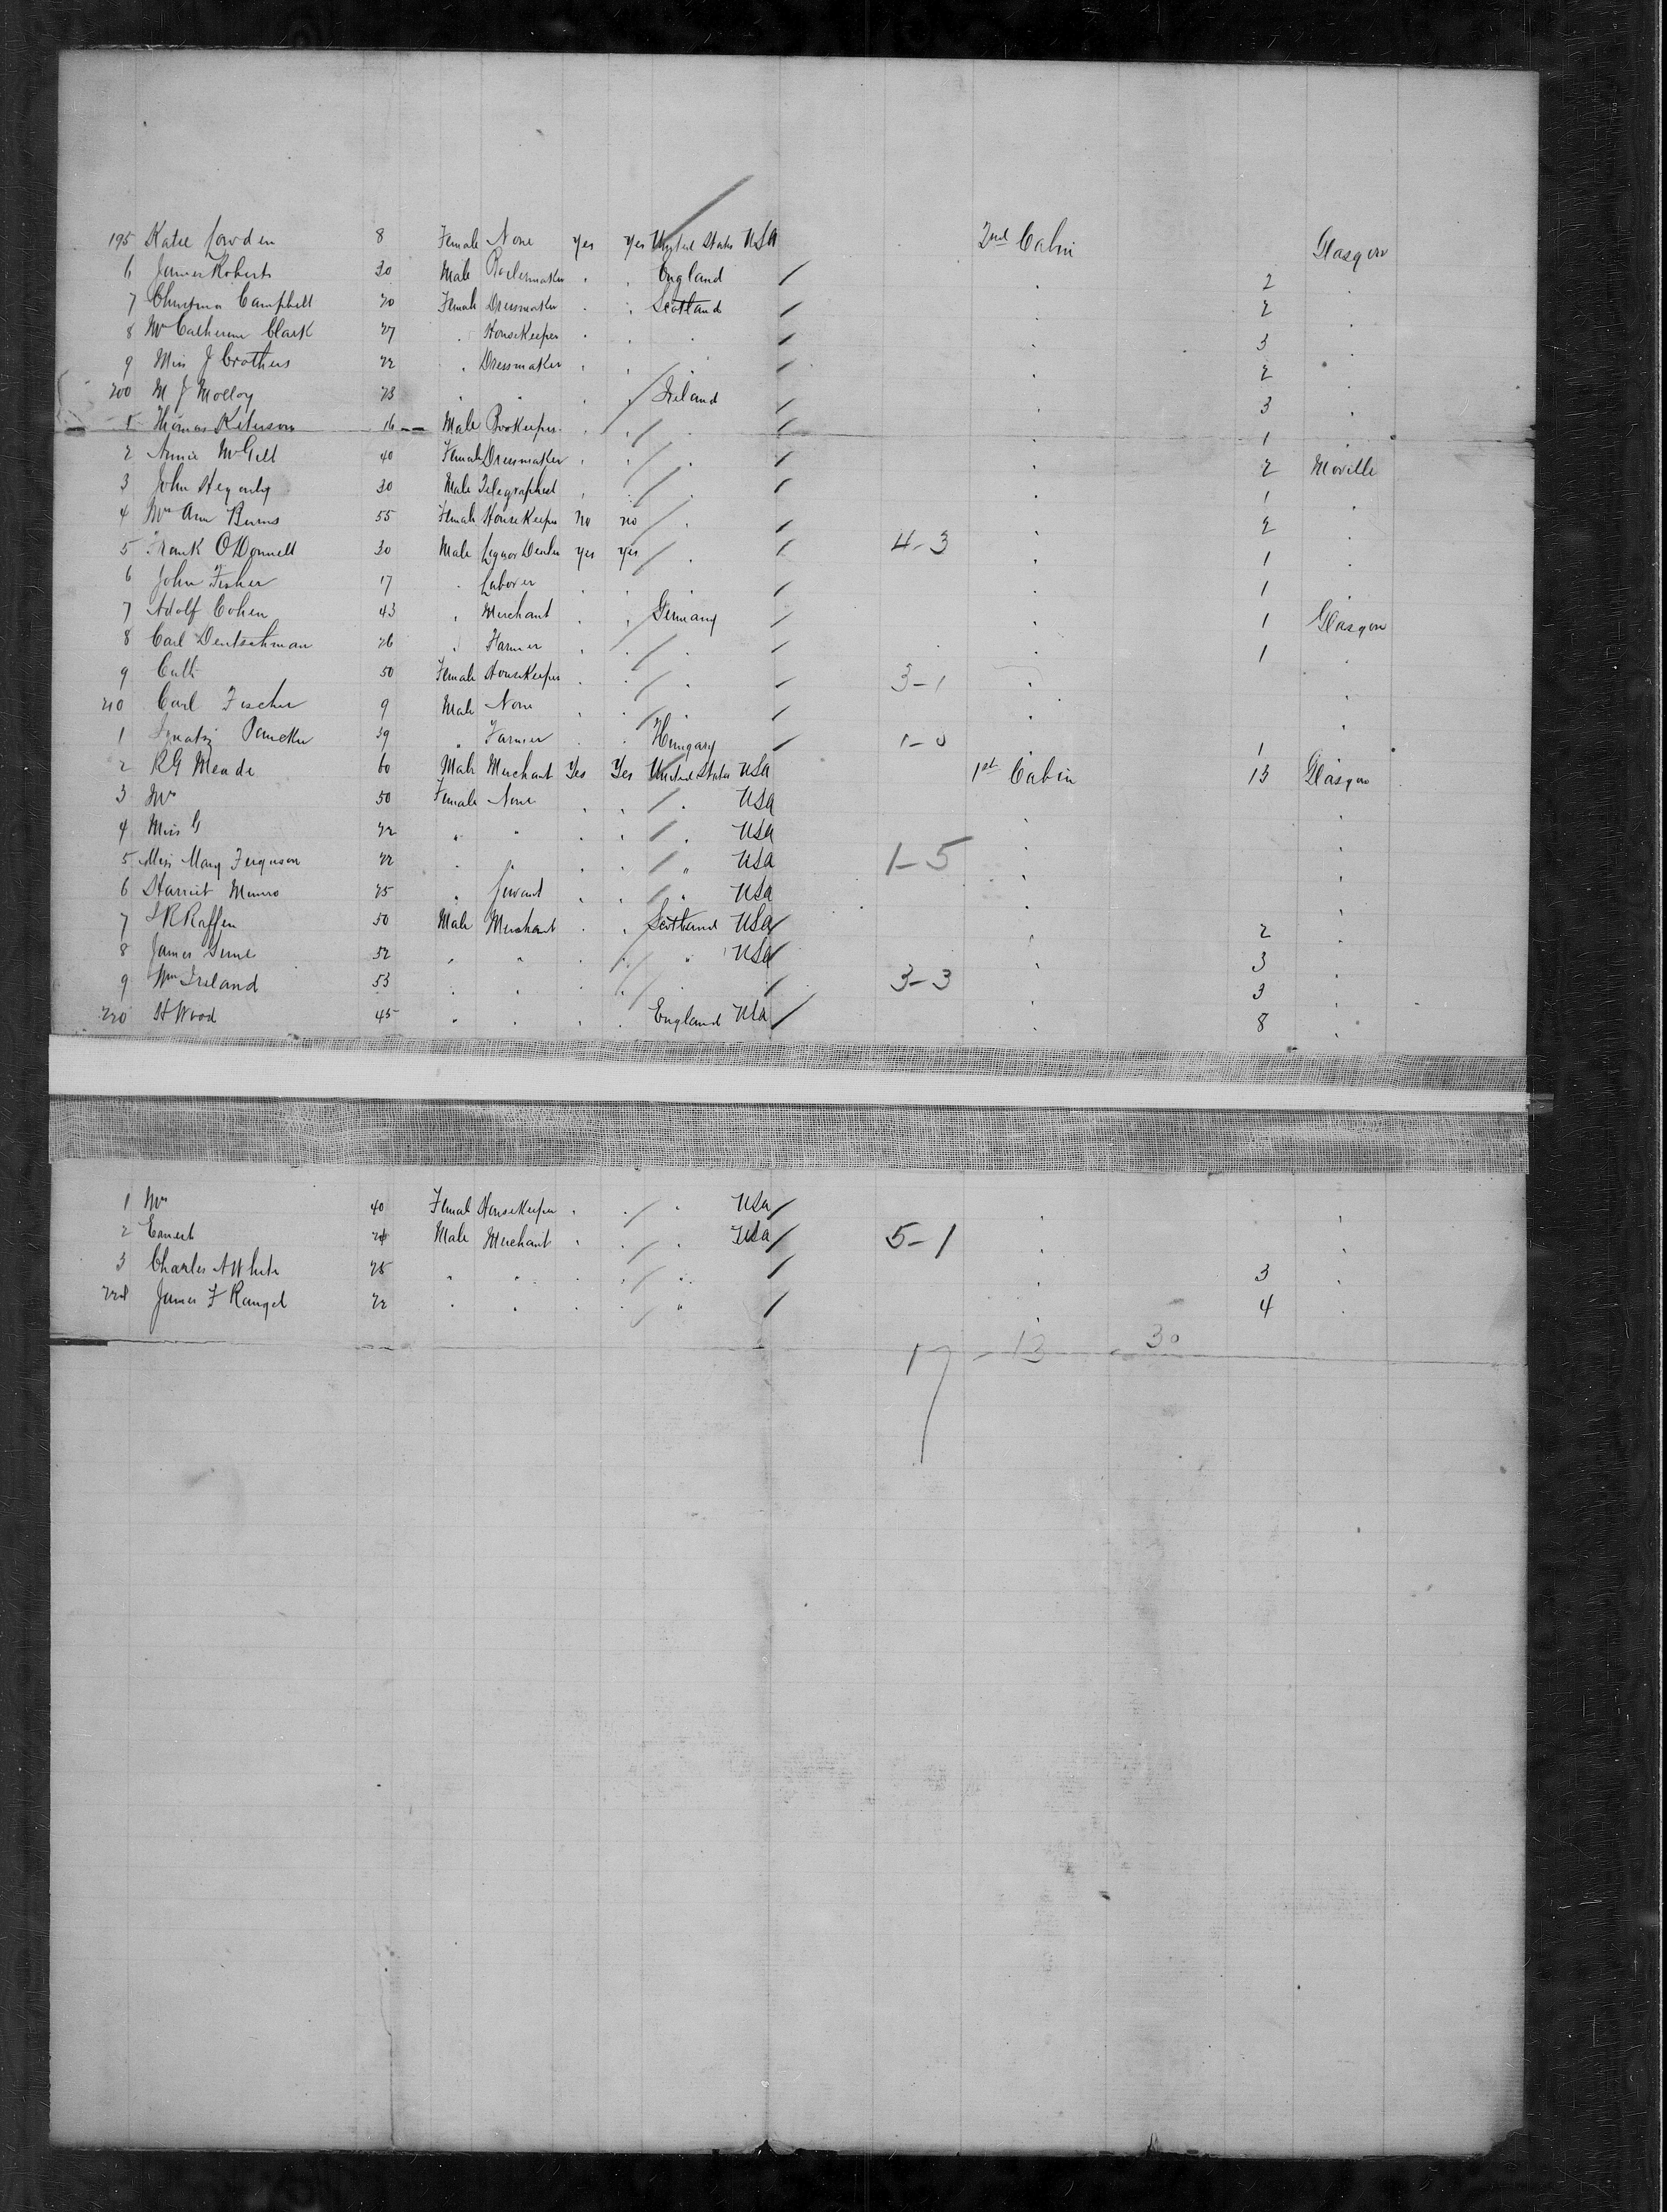 195 Katie Lowden 8 Female None yes yes United States USA 2nd Cabin Glasgow
6 James Roberts 30 Male Boilermaker " " England / " 2 "
7 Christina Campbell 20 Female Dressmaker " " Scotland / " 2
8 Mrs Catherine Clark 27 " Housekeeper " " " / " 3 "
9 Miss J Crothers 22 " Dressmaker " " " / " 2 "
200 M J Molloy 23 " " " " / Ireland / " 3 "
1 Thomas Peterson 16 Male Bookeeper " " / " / " 1 "
2 Annie McGill 40 Female Dressmaker " " / " / " 2 Moville
3 John Hegarty 30 Male Telegraphist " " / " / " 1 "
4 Mrs Ann Burns 55 Female Housekeeper no no / " / " 2 "
5 Frank O'Donnell 30 Male Liquor Dealer yes yes / " / 4-3 " 1 "
6 John Fisher 17 " Laborer " " " / " 1 "
7 Adolf Cohen 43 " Merchant " " Germany / " 1 Glasgow
8 Carl Deutschman 26 " Farmer " " / " / " 1 "
9 Cath 50 Female Housekeeper " " / " / 3-1 " "
210 Carl Fischer 9 Male None " " / " / " "
1 39 " Farmer " " Hungary / 1-0 1
2 RG Meade 60 Male Merchant Yes Yes United States USA 1st Cabin 13 Glasgow
3 Mrs 50 Female None " " / " USA " "
4 Miss G 22 " " " " / " USA " "
5 Miss Mary Ferguson 22 " " " " / " USA 1-5 " "
6 Harriet Munro 25 " Servant " " / " USA " "
7 Raffen 50 Male Merchant " " Scotland USA / " 2 "
8 James 52 " " " " / " USA / " 3 "
9 Wm Ireland 53 " " " " / " / 3-3 " 3 "
220 H Wood 45 " " " " England USA / " 8 "
1 Mrs 40 Female Housekeeper " " / " USA / " "
2 Ernest 21 Male Merchant " " / " USA / 5-1 " "
3 Charles A White 25 " " " " / " / " 3 "
224 James F Rangel 22 " " " " / " / " 4 "
17 - 13 - 30